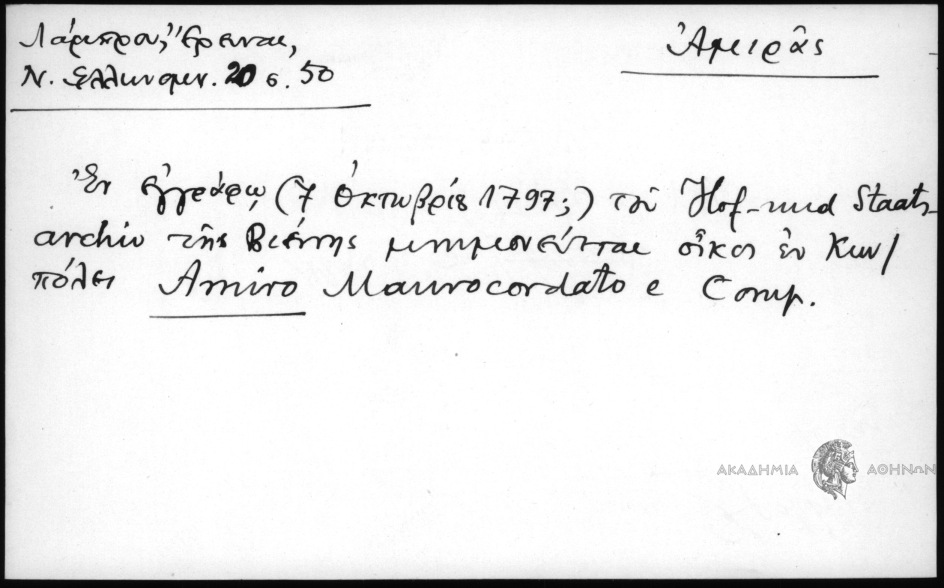 Λάμπρου, Ἔρευναι,
Ἀμειρᾶς
Ν. Ἑλληνομν. 20 σ. 50
Ἐν ἐγγράφῳ (7 Ὀκτωβρίου 1797;) τοῦ Hof-und Staats-
archiv τῆς Βιέννης μνημονεύεται οἶκος ἐν Κων/
πόλει Amiro Maurocordato e Comp.
ΑΚΑΔΗΜΙΑ ΑΘΗΝΩΝ